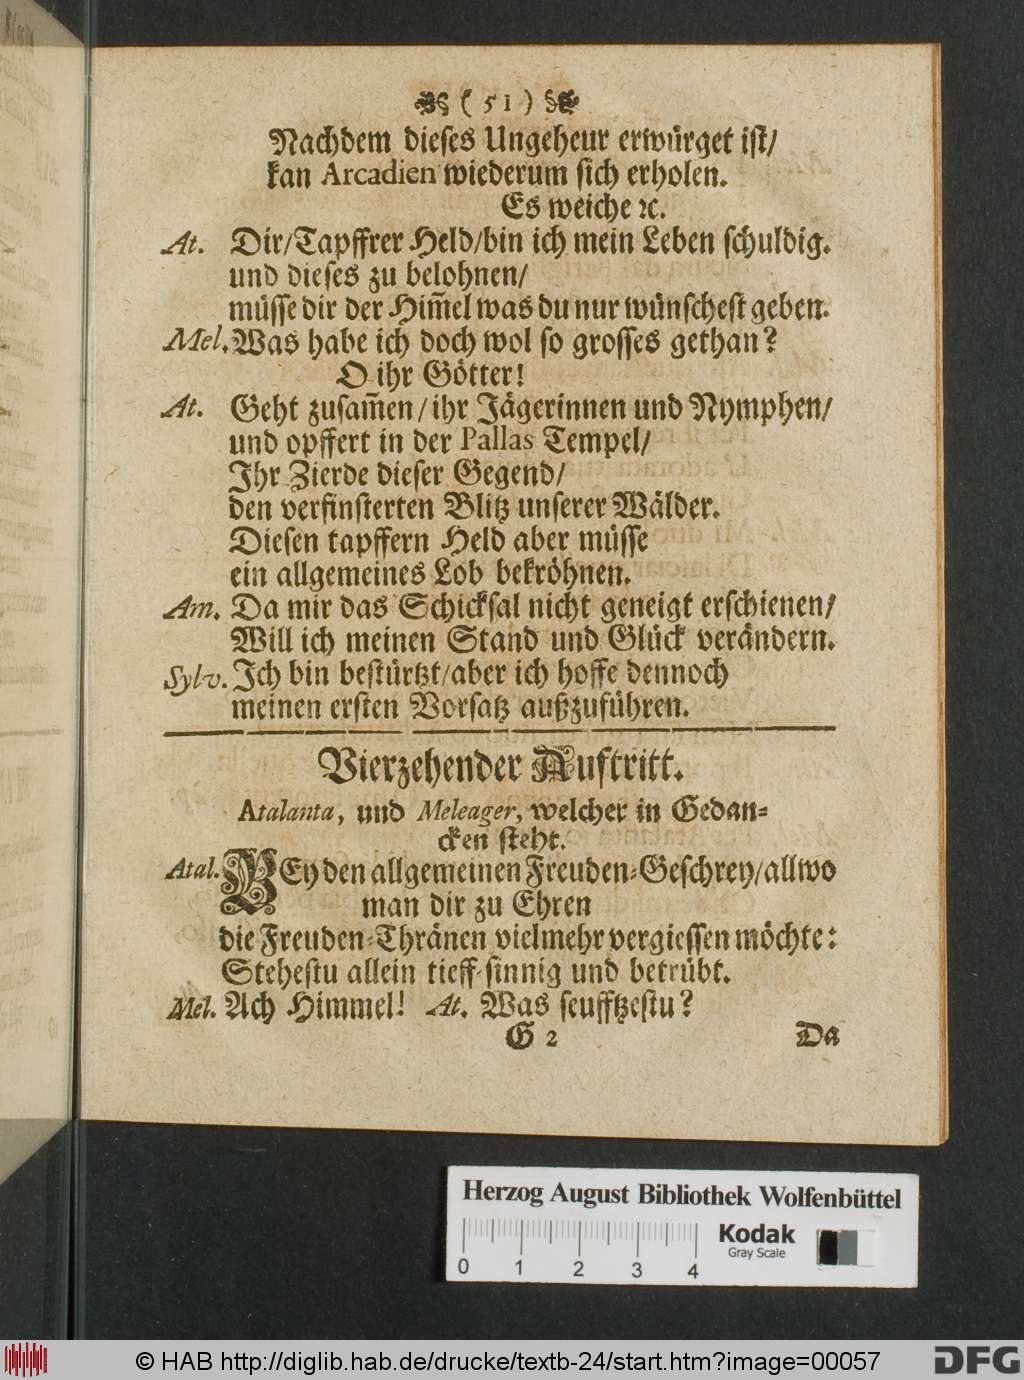 ( 51 )
Nachdem dieses Ungeheur erwürget ist/
kan Arcadien wiederum sich erholen.
Es weiche ꝛc.
At. Dir/Tapffrer Held/bin ich mein Leben schuldig.
und dieses zu belohnen/
müsse dir der Him̃el was du nur wünschest geben.
Mel. Was habe ich doch wol so grosses gethan?
O ihr Götter!
At. Geht zusam̃en/ihr Jägerinnen und Nymphen/
und opffert in der Pallas Tempel/
Ihr Zierde dieser Gegend/
den verfinsterten Blitz unserer Wälder.
Diesen tapffern Held aber müsse
ein allgemeines Lob bekröhnen.
Am. Da mir das Schicksal nicht geneigt erschienen/
Will ich meinen Stand und Glück verändern.
Sylv. Ich bin bestürtzt/aber ich hoffe dennoch
meinen ersten Vorsatz außzuführen.
Vierzehender Auftritt.
Atalanta, und Meleager, welcher in Gedan=
cken steht.
Atal. BEy den allgemeinen Freuden=Geschrey/allwo
man dir zu Ehren
die Freuden=Thränen vielmehr vergiessen möchte:
Stehestu allein tieff=sinnig und betrübt.
Mel. Ach Himmel! At. Was seufftzestu?
G 2 Da
Herzog August Bibliothek Wolfenbüttel
Kodak
Gray Scale
0 1 2 3 4
© HAB http://diglib.hab.de/drucke/textb-24/start.htm?image=00057
DFG